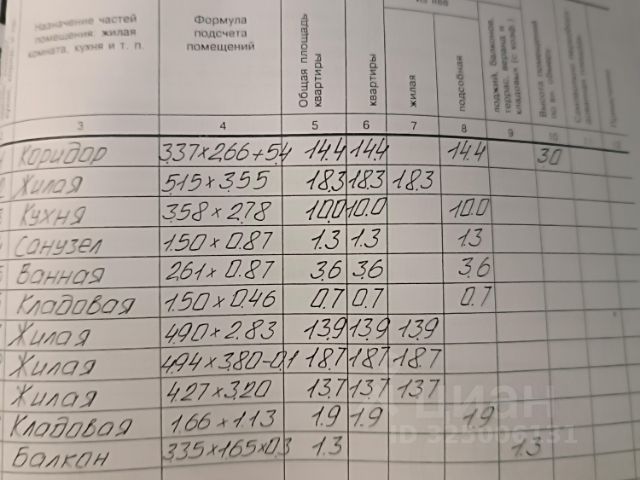 Назначение частей помещения: жилая комната, кухня и т. п.
Формула подсчета помещений
Общая площадь квартиры
квартиры
жилая
подсобная
лоджий, балконов, террас, веранд и кладовых (с коэф.)
Высота помещений по вн. обмеру
3 4 5 6 7 8 9 10
Коридор 3.37×2.66+5.4 14.4 14.4 14.4 30
Жилая 5.15×3.55 18.3 18.3 18.3
Кухня 3.58×2.78 10.0 10.0 10.0
Санузел 1.50×0.87 1.3 1.3 1.3
Ванная 2.61×0.87 3.6 3.6 3.6
Кладовая 1.50×0.46 0.7 0.7 0.7
Жилая 4.90×2.83 13.9 13.9 13.9
Жилая 4.94×3.80-0.1 18.7 18.7 18.7
Жилая 4.27×3.20 13.7 13.7 13.7
Кладовая 1.66×1.13 1.9 1.9 1.9
Балкон 3.35×1.65×0.3 1.3 1.3
циан